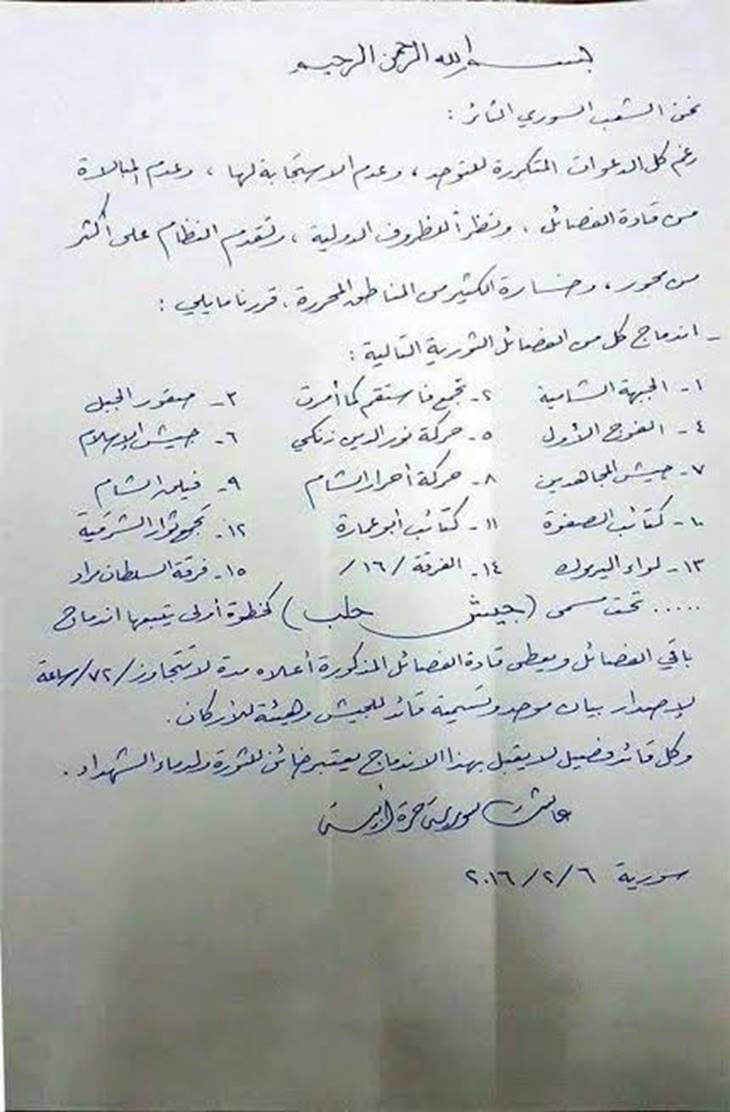 بسم الله الرحمن الرحيم
نحن الشعب السوري الثائر :
رغم كل الدعوات المتكررة للتوحد ، وعدم الاستجابة لها ، وعدم المبالاة
من قادة الفصائل ، ونظراً للظروف الدولية ، وتقدم النظام على أكثر
من محور ، وخسارة الكثير من المناطق المحررة . قررنا مايلي :
- اندماج كل من الفصائل الثورية التالية :
١- الجبهة الشامية ٢- تجمع فاستقم كما أمرت ٣- صقور الجبل
٤- الفوج الأول ٥- حركة نور الدين زنكي ٦- جيش الإسلام
٧- جيش المجاهدين ٨- حركة أحرار الشام ٩- فيلق الشام
١٠- كتائب الصفوة ١١- كتائب أبو عمارة ١٢- تجمع ثوار الشرقية
١٣- لواء اليرموك ١٤- الفرقة /١٦/ ١٥- فرقة السلطان مراد
..... تحت مسمى (جيش حلب) كخطوة أولى يتبعها اندماج
باقي الفصائل ويعطى قادة الفصائل المذكورة أعلاه مدة لا تتجاوز /٧٢/ ساعة
لإصدار بيان موحد وتسمية قائد للجيش وهيئة للأركان .
وكل قائد فصيل لا يقبل بهذا الاندماج يعتبر خائن للثورة ولدماء الشهداء .
عاشت سورية حرة أبية
سورية ٢٠١٦/٢/٦